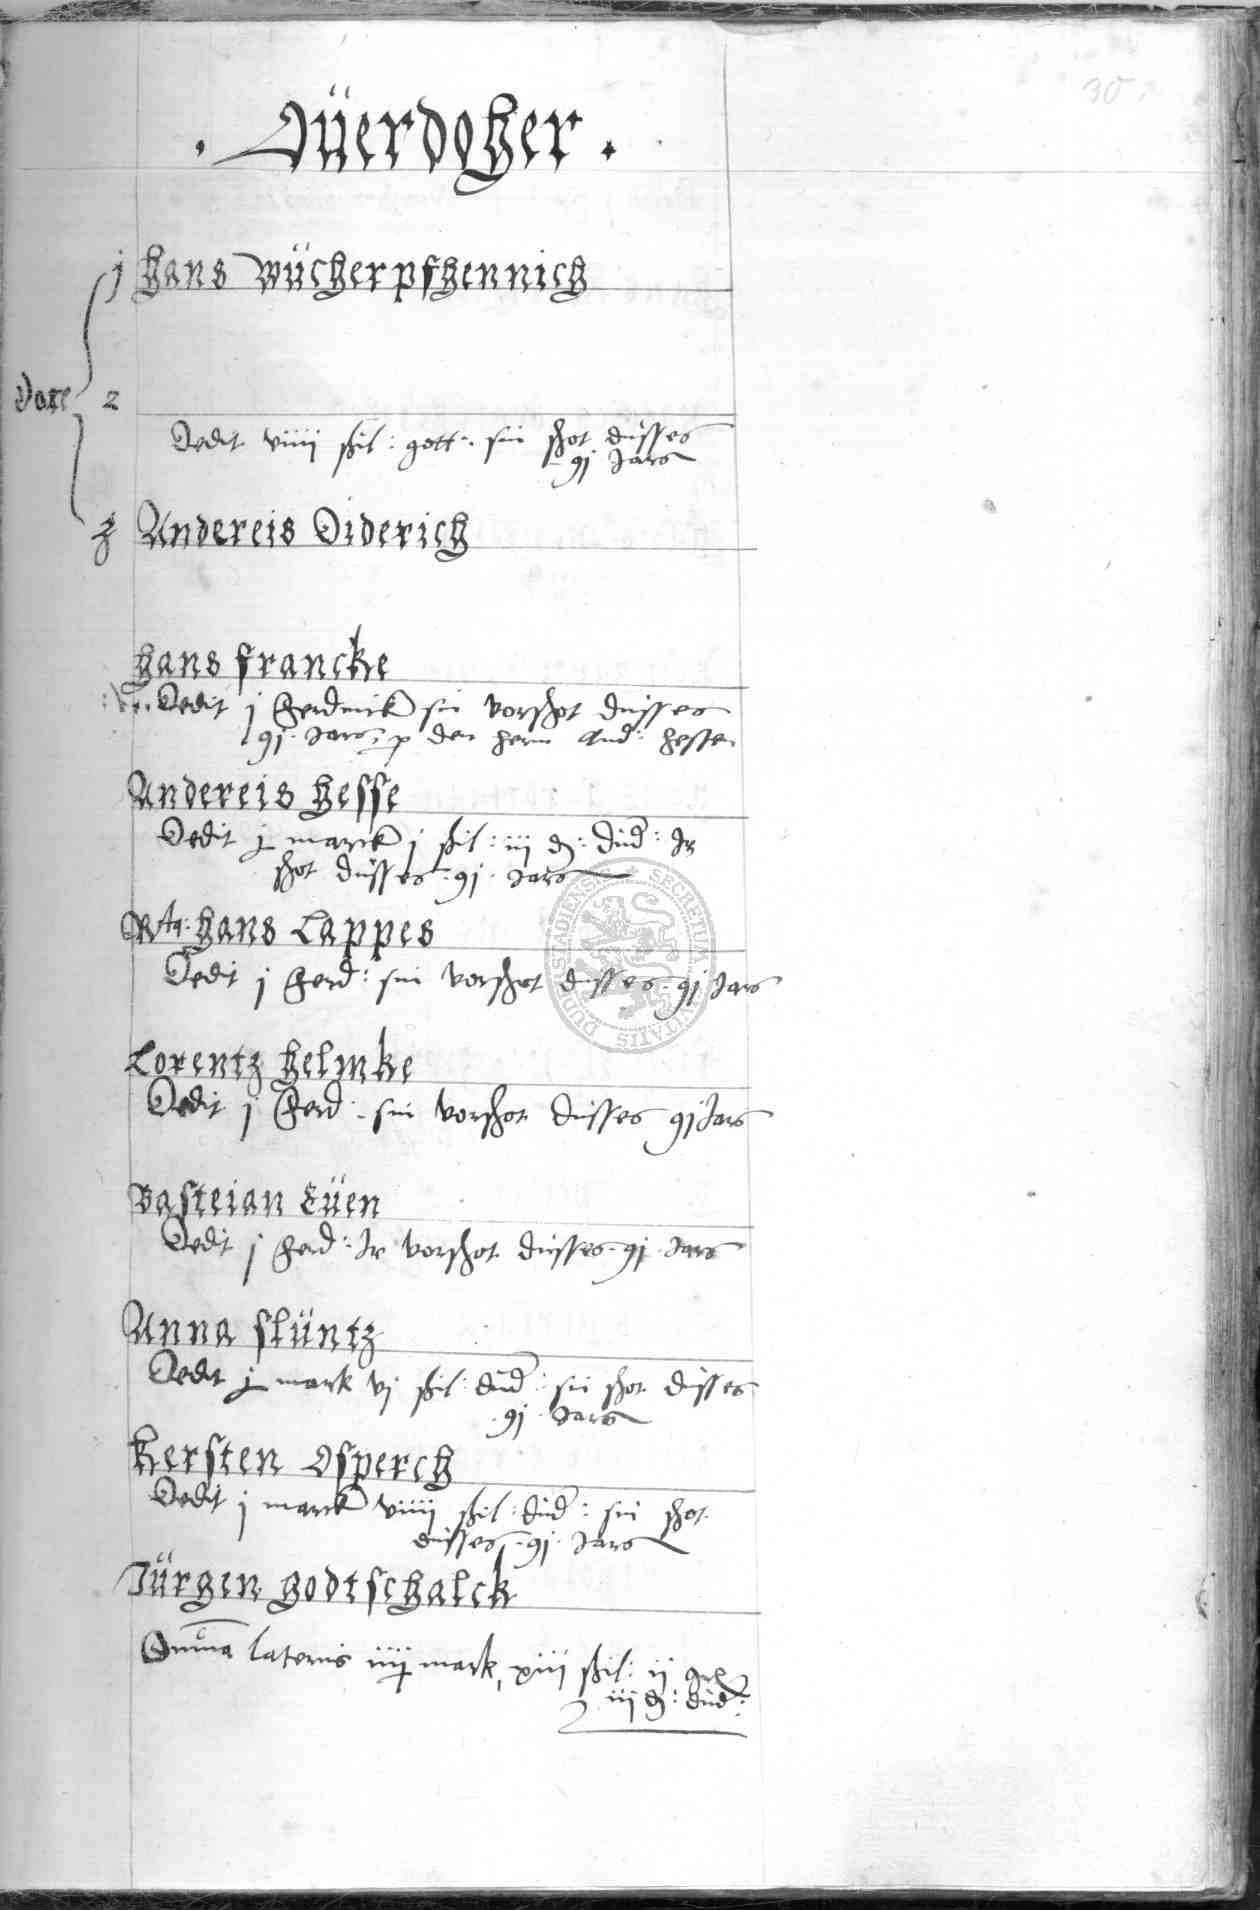 30
. Züerdoher .
j Hans Wücherpfhennich
Dare 2
Dedit viiii shil: gott: sin shot dusses
91 Jars
3 Andereis Diderich
Hans Francke
Dedit j ferdinck sin vorshot dusses
91 Jars, p den hern And: Hessen
Andereis Hesse
Dedit j marck j shil: iij d: Dud: Ir
shot dusses 91 Jars
Hans Lappes
Dedit j ferd: sin vorshot dusses 91 Jars
Lorentz Helmke
Dedit j ferd: sin vorshot dusses 91 Jars
Basteian Eüen
Dedit j ferd: Ir vorshot dusses 91 Jars
Anna Slüntz
Dedit j mark vj shil: dud: sin shot dusses
91 Jars
Kersten Osperch
Dedit j marck viiii shil: dud: sin shot
dusses 91 Jars
Jürgen Godtschalck
Summa lateris iiij mark, xiii shil: ii
iij d: dud:
SECRETUM CIVITATIS DUDERSTADIENSIS